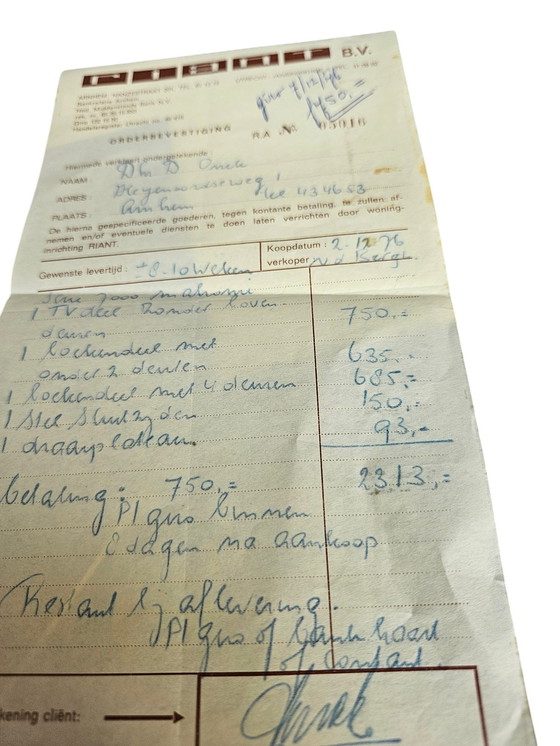 RIANT B.V.
giro 9/12/76
750,=
ORDERBEVESTIGING R.A. №
Hiermede verklaart ondergetekende :
NAAM : Dhr D
ADRES : tel 434683
PLAATS : Arnhem
De hierna gespecificeerde goederen, tegen kontante betaling, te zullen af-
nemen en/of eventuele diensten te doen laten verrichten door woning-
inrichting RIANT.
Gewenste levertijd : ±8-10 weken
Koopdatum : 2-12-76
verkoper v d Bergh.
Serie 7000 mahonie
1 TV deel zonder boven- 750,=
deuren
1 boekendeel met 635,-
onder 2 deuren
1 boekendeel met 4 deuren 685,=
1 stel sluitzijden 150,-
1 draaiplateau. 93,-
2313,=
betaling : 750,=
P/giro binnen
8 dagen na aankoop
Restant bij aflevering.
P/giro of bank kaart
of contant.
kening cliënt: